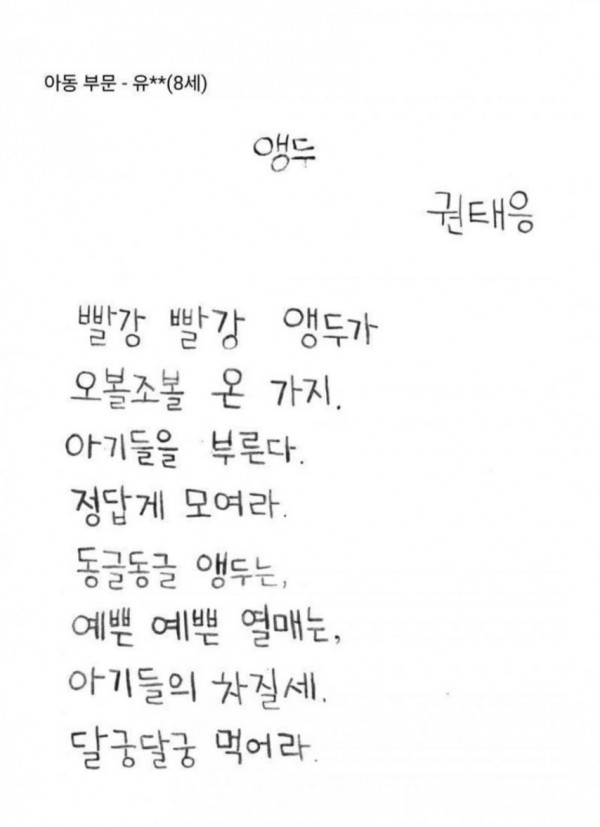 아동 부문 - 유**(8세)
앵두
권태응
빨강 빨강 앵두가
오볼조볼 온 가지.
아기들을 부른다.
정답게 모여라.
동글동글 앵두는,
예쁜 예쁜 열매는,
아기들의 차질세.
달궁달궁 먹어라.